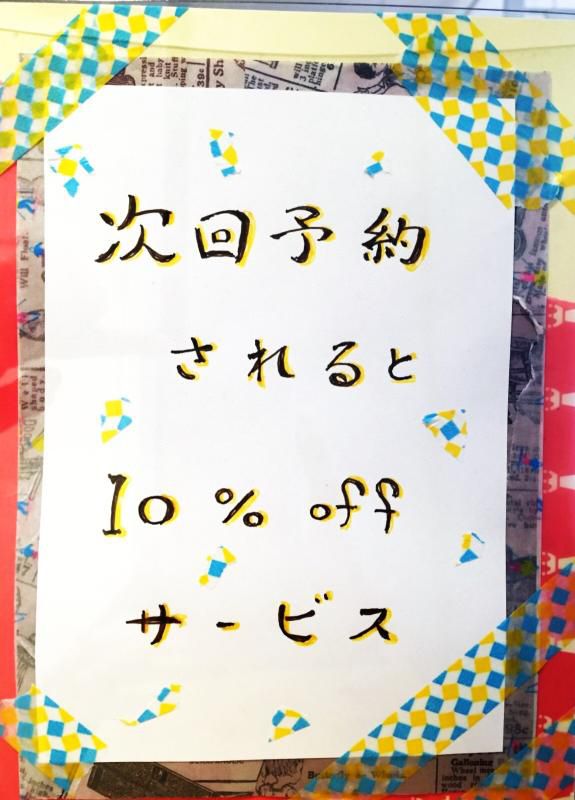 次回予約
されると
10% off
サービス